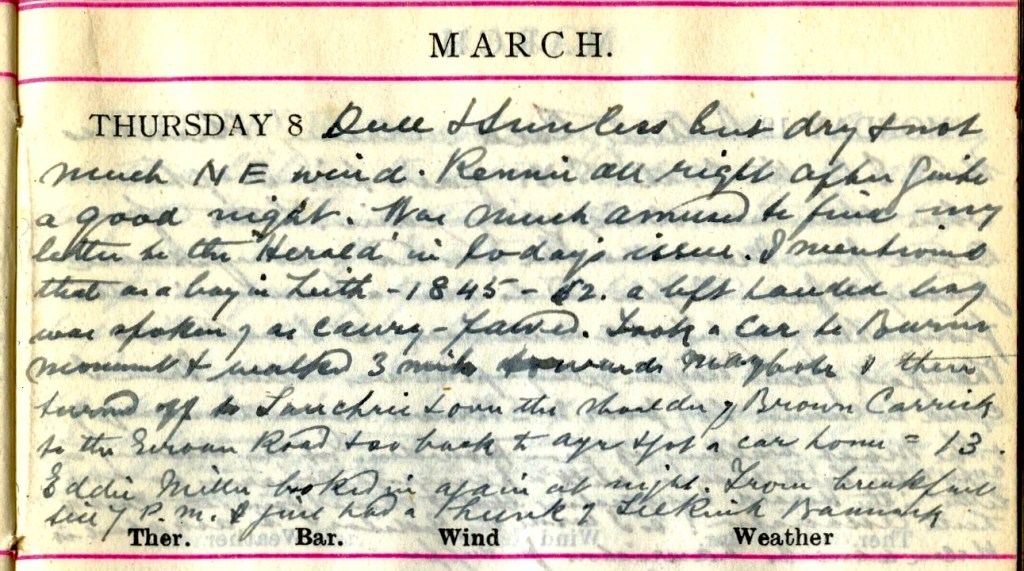 MARCH.
THURSDAY 8 Dull & Sunless but dry & not
much NE wind. Rennie all right after quite
a good night. Was much amused to find my
letter to the "Herald" in today's issue. I mentioned
that as a boy in Leith - 1845 - 52. a left handed boy
was spoken of as cawry - pawed. Took a car to Burns
monument & walked 3 miles towards Maybole & then
turned off to over the shoulder of Brown Carrick
to the Road & so back to Ayr & got a car home = 13.
Eddie Miller looked in again at night. From breakfast
till 7 P.M. I just had a hunk of Selkirk Bannock
Ther. Bar. Wind Weather